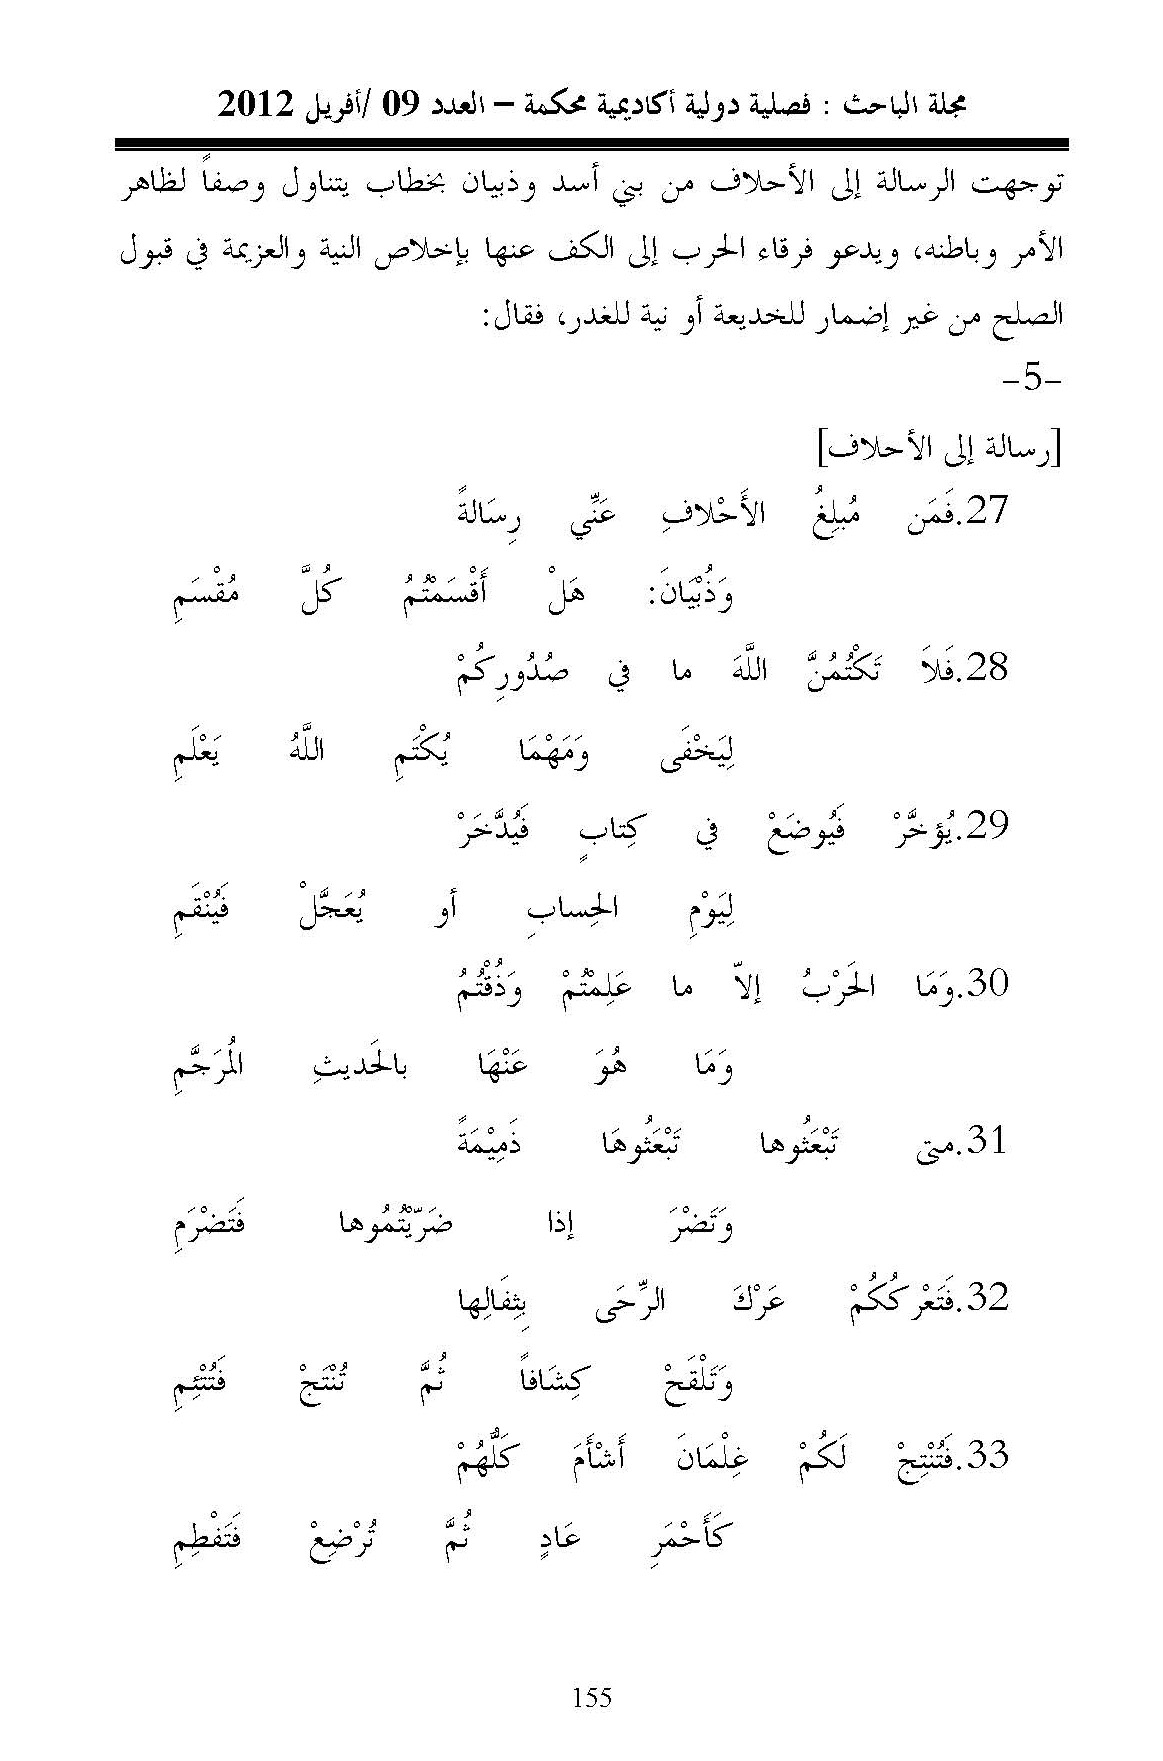 مجلة الباحث : فصلية دولية أكاديمية محكمة – العدد 09 /أفريل 2012
توجهت الرسالة إلى الأحلاف من بني أسد وذبيان بخطاب يتناول وصفاً لظاهر
الأمر وباطنه، ويدعو فرقاء الحرب إلى الكف عنها بإخلاص النية والعزيمة في قبول
الصلح من غير إضمار للخديعة أو نية للغدر، فقال:
-5-
[رسالة إلى الأحلاف]
27.فَمَن مُبلِغُ الأَحْلافِ عَنِّي رِسَالةً
وَذُبْيَانَ: هَلْ أَقْسَمْتُمُ كُلَّ مُقْسَمِ
28.فَلاَ تَكْتُمُنَّ اللَّهَ ما في صُدُورِكُمْ
لِيَخْفَى وَمَهْمَا يُكْتَمِ اللَّهُ يَعْلَمِ
29.يُؤخَّرْ فَيُوضَعْ في كِتابٍ فَيُدَّخَرْ
لِيَوْمِ الحِسابِ أو يُعَجَّلْ فَيُنْقَمِ
30.وَمَا الحَرْبُ إلاّ ما عَلِمْتُمْ وَذُقْتُمُ
وَمَا هُوَ عَنْهَا بالحَديثِ المُرَجَّمِ
31.متى تَبْعَثُوها تَبْعَثُوهَا ذَمِيْمَةً
وَتَضْرَ إذا ضَرّيْتُمُوها فَتَضْرَمِ
32.فَتَعْرُككُمْ عَرْكَ الرَّحَى بِثِفَالِها
وَتَلْقَحْ كِشَافاً ثُمَّ تُنْتَجْ فَتُتْئِمِ
33.فَتُنْتِجْ لَكُمْ غِلْمَانَ أَشْأَمَ كَلُّهُمْ
كَأَحْمَرِ عَادٍ ثُمَّ تُرْضِعْ فَتَفْطِمِ
155